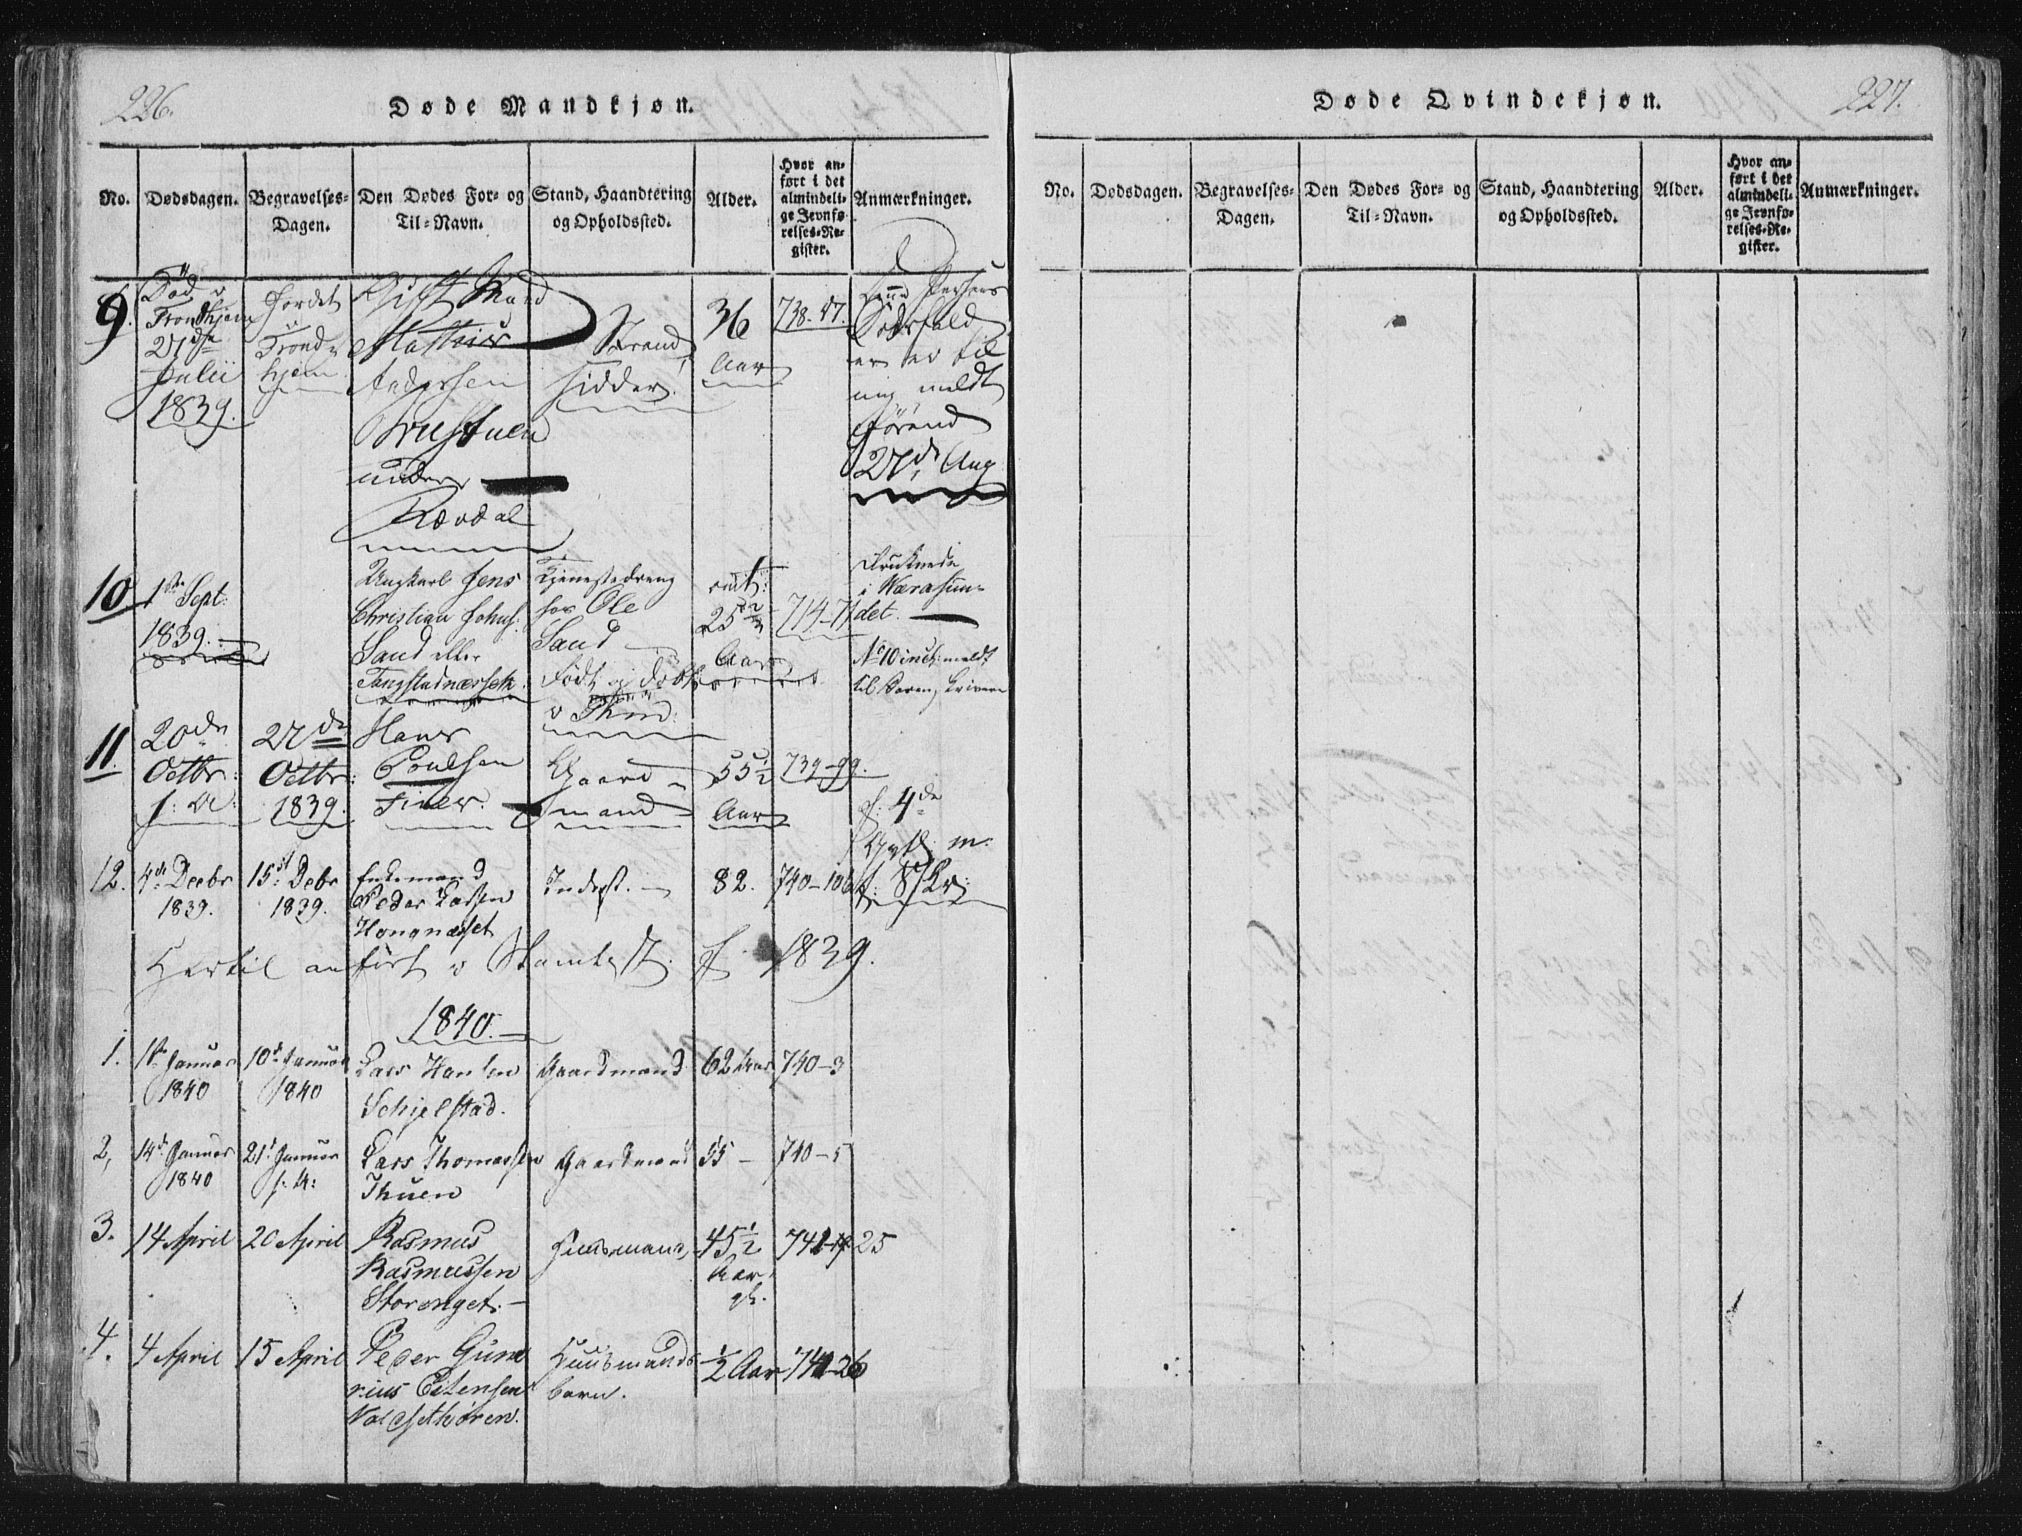 226.
Døde Mandkjøn.
No.
Dødsdagen.
Begravelses-
Dagen.
Den Dødes For- og
Til-Navn.
Stand, Haandtering
og Opholdssted.
Alder.
Hvor an-
ført i det
almindeli-
ge Jevnfø-
relses-Re-
gister.
Anmærkninger.
9.
Død i
Trondhjem
27de
Julii
1839.
Jordet
Trond-
hjem
Gift Mand
Mathias
Andersen
under
Rævdal
Strand
sidder.
36
Aar
738-87.
Dødsfald
er
til
mig meldt
27de Aug
10
1ste Sept:
1839.
Ungkarl Jens
Christian Johns:
Sand eller
Tjenestedreng
hos Ole
Sand
Født og Døbt
omt:
25
Aar
714-71
Druknede
i Værasun-
det.
No 10 meldt
til Sorenskriveren
11.
20de
Octbr:
27de
Octbr:
1839.
Hans
Poulsen
Gaard-
mand
55½
Aar
739-99.
f: 4de
12.
4de Decbr
1839.
15de Debr
1839.
Enkemand
Peder Larsen
Hongnæsset
Inderst.
82.
740-106
Hertil anført v 1839.
1840.
1.
1ste Januar
1840
10de Januar
1840
Lars Hansen
Schjelstad.
Gaardmand
62 Aar
740-3
2,
14de Januar
1840
21de Januar
s: A:
Lars Thomassen
Thuen
Gaardmand
55 -
740-5
3.
14 April
20 April
Rasmus
Rasmussen
Storenget.-
Huusmand,
45½
Aar
gl.
741-25
4.
4 April
15 April
Peder Gune
rius Eitensen
Valdsethøren.
Huusmands
barn.
½ Aar
741-26
227.
Døde Qvindekjøn.
No.
Dødsdagen.
Begravelses-
Dagen.
Den Dødes For- og
Til-Navn.
Stand, Haandtering
og Opholdssted.
Alder.
Hvor an-
ført i det
almindeli-
ge Jevnfø-
relses-Re-
gister.
Anmærkninger.